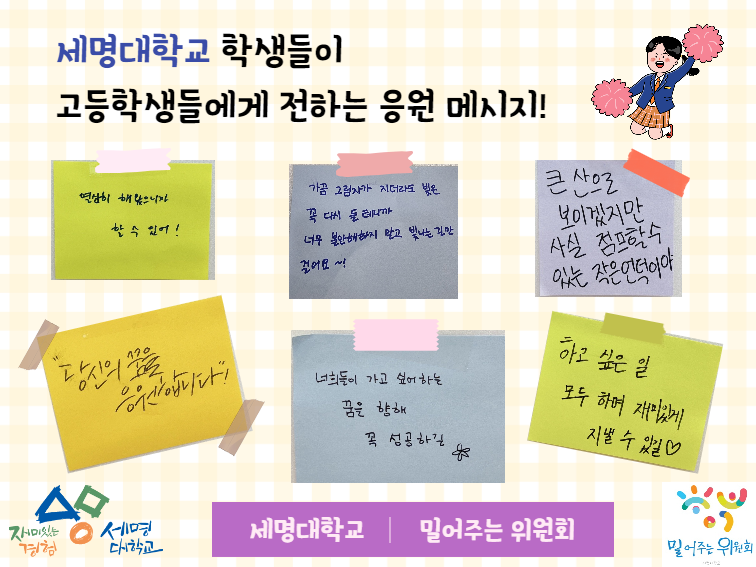 세명대학교 학생들이
고등학생들에게 전하는 응원 메시지!
열심히 해왔으니까
할 수 있어!
가끔 그림자가 지더라도 빛은
꼭 다시 들 테니까
너무 불안해하지 말고 빛나는 길만
걸어요 ~!
큰 산으로
보이겠지만
사실 점프할 수
있는 작은 언덕이야
"당신의 꿈을
응원합니다"!
너희들이 가고 싶어하는
꿈을 향해
꼭 성공하길
하고 싶은 일
모두 하며 재미있게
지낼 수 있길♡
재미있는
경험
세명
대학교
세명대학교 | 밀어주는 위원회
밀어주는 위원회